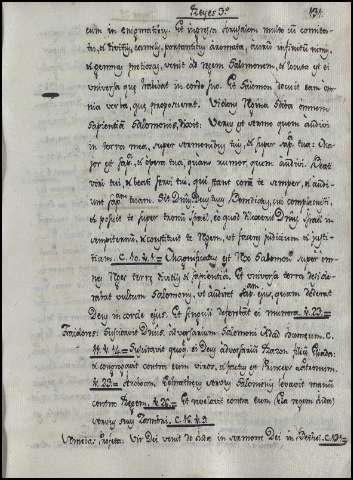 Reyes 3º 131
eum in enigmatibus. Et ingressa Jerusalem multo cum comita-
tu, et divitijs, camelis, portantibus aromata, aurum infinitum nimis,
et gemmas pretiosas, venit ad regem Salomonem, et locuta est ei
universa que habebat in corde suo. Et Salomon docuit eam om-
nia verba, que proposuerat. Videns Saba omnem
sapientiã Salomonis, dixit: Verus est sermo quem audivi
in terra mea, super sermonibus tuis, et super sapª. tua: Ma-
jor est sapª. et opera tua, quam rumor quem audivi. Beati
viri tui, et beati servi tui, qui stant corã te semper, et audi-
unt sapªm. tuam. Sit Dñus Deus tuus Benedictus, cui complacuisti,
et posuit te super tronum Israel, eo quod dilexerit Dñus Israel in
sempiternũ, et constituit te Regem, ut faceres judicium et justi-
tiam. C. 10. ℣. 1.= Magnificatus est Rex Salomon super om-
nes Reges terre divitijs et sapientia. Et universa terra deside-
rabat vultum Salomonis, ut audiret sapªm. ejus, quam dederat
Deus in corde ejus. Et singuli deportabant ei munera ℣. 23.=
Traidores: Suscitavit Dñus. adversarium Salomoni Adad Idumeum. C.
11. ℣. 14.= Suscitavit quoqe. ei Deus adversarium Razon filium Eliada:
et congregavit contra eum viros, et factus est Princeps latronum.
℣. 23.= Jeroboam, Ephratheus servus Salomonis levavit manũ
contra Regem. ℣. 26.= Et rebelavit contra eum
servus suus Zambri. C. 16. ℣. 9.
Profeta: Vir Dei venit de Juda in sermone Dei in Bethel. C. 13.